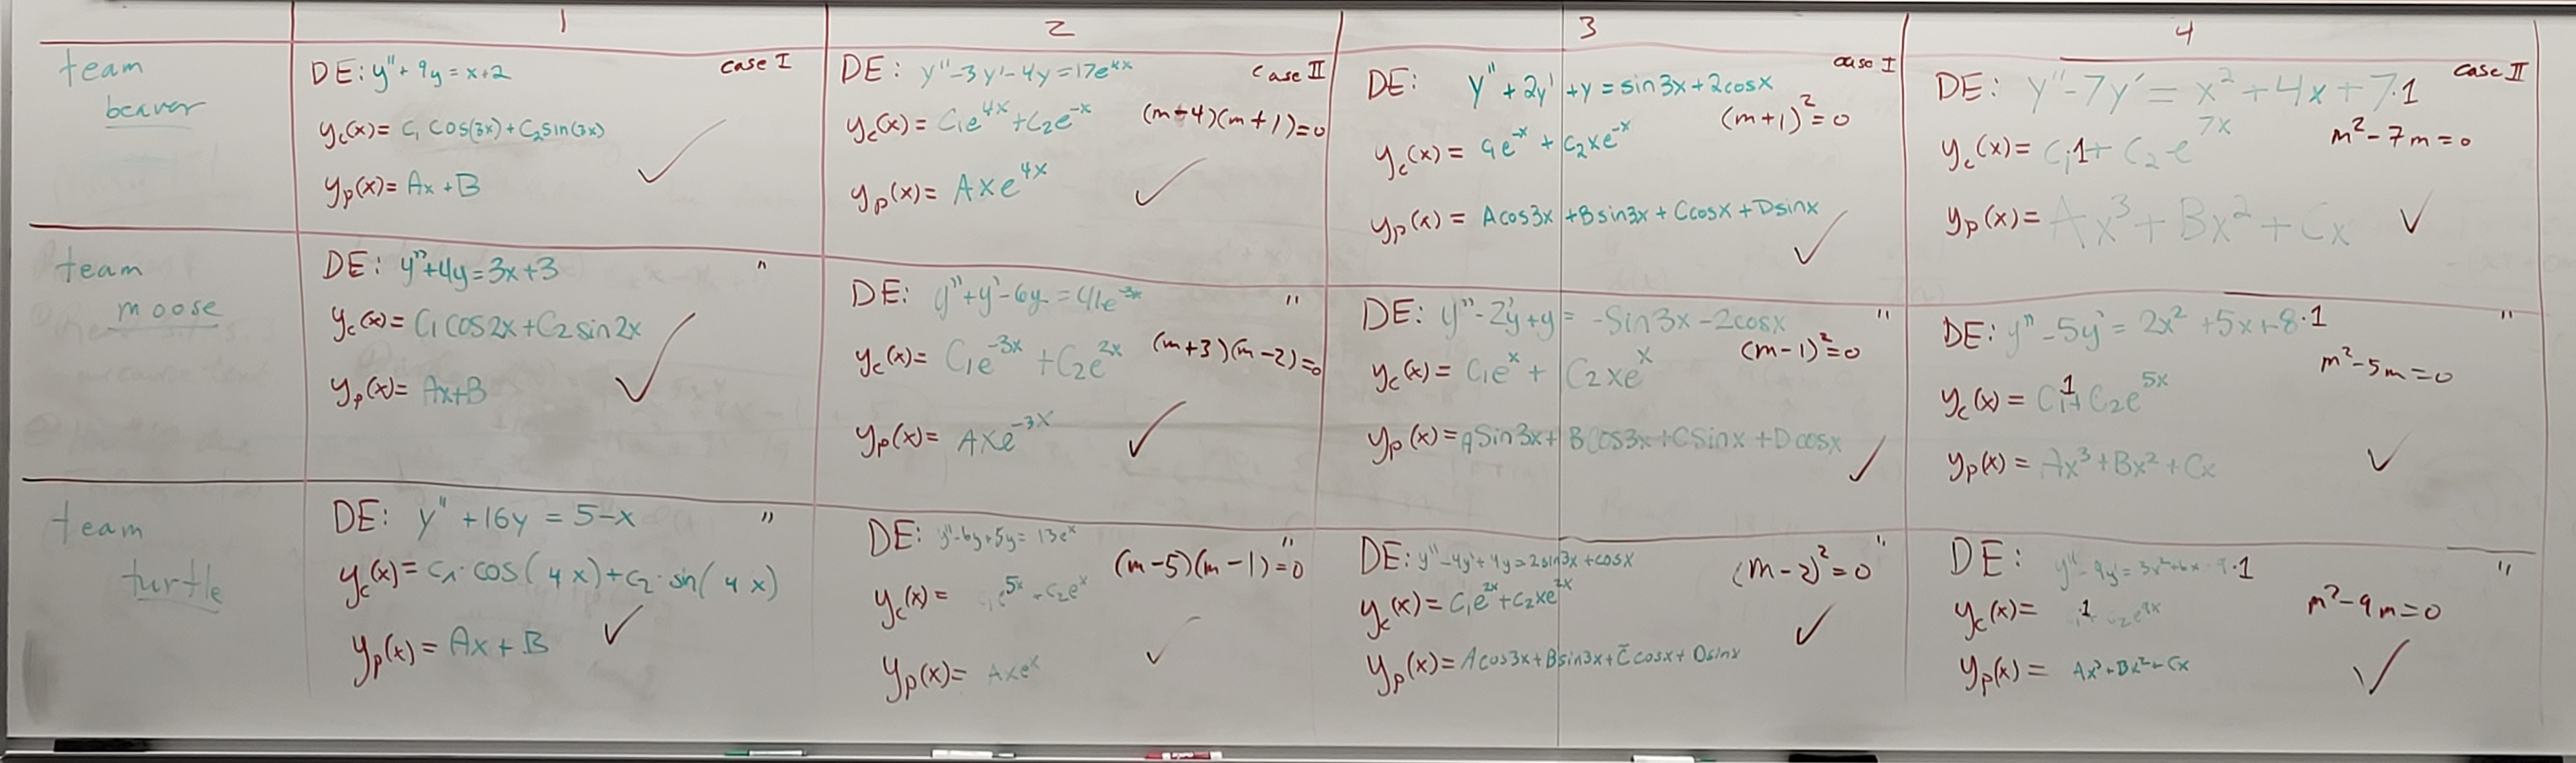 1 2 3 4
team
beaver
DE: y'' + 9y = x+2 case I
y_c(x) = c₁ cos(3x) + c₂ sin(3x)
y_p(x) = Ax + B ✓
DE: y'' - 3y' - 4y = 17e^4x case II
y_c(x) = C₁e^4x + C₂e^-x (m-4)(m+1)=0
y_p(x) = Axe^4x ✓
DE: y'' + 2y' + y = sin3x + 2cosx case I
(m+1)²=0
y_c(x) = c₁e^-x + c₂xe^-x
y_p(x) = Acos3x + Bsin3x + Ccosx + Dsinx ✓
DE: y'' - 7y' = x² + 4x + 7·1 case II
y_c(x) = c₁1 + c₂e^7x m²-7m=0
y_p(x) = Ax³ + Bx² + Cx ✓
team
moose
DE: y'' + 4y = 3x+3 "
y_c(x) = C₁cos2x + C₂sin2x
y_p(x) = Ax+B ✓
DE: y'' + y' - 6y = 41e^-3x "
y_c(x) = C₁e^-3x + C₂e^2x (m+3)(m-2)=0
y_p(x) = Axe^-3x ✓
DE: y'' - 2y' + y = -sin3x - 2cosx "
(m-1)²=0
y_c(x) = C₁e^x + C₂xe^x
y_p(x) = Asin3x + Bcos3x + Csinx + Dcosx ✓
DE: y'' - 5y' = 2x² + 5x + 8·1 "
m²-5m=0
y_c(x) = C₁1 + C₂e^5x
y_p(x) = Ax³ + Bx² + Cx ✓
team
turtle
DE: y'' + 16y = 5-x "
y_c(x) = c₁·cos(4x) + c₂·sin(4x)
y_p(x) = Ax + B ✓
DE: y''-6y+5y = 13e^x "
(m-5)(m-1)=0
y_c(x) = c₁e^5x + c₂e^x
y_p(x) = Axe^x ✓
DE: y'' - 4y' + 4y = 2sin3x + cosx "
(m-2)²=0
y_c(x) = C₁e^2x + C₂xe^2x ✓
y_p(x) = Acos3x + Bsin3x + Ccosx + Dsinx
DE: y'' - 9y' = 3x²+6x ·1 "
y_c(x) = 1 + c₂e^9x m²-9m=0
y_p(x) = Ax³+Bx²+Cx ✓